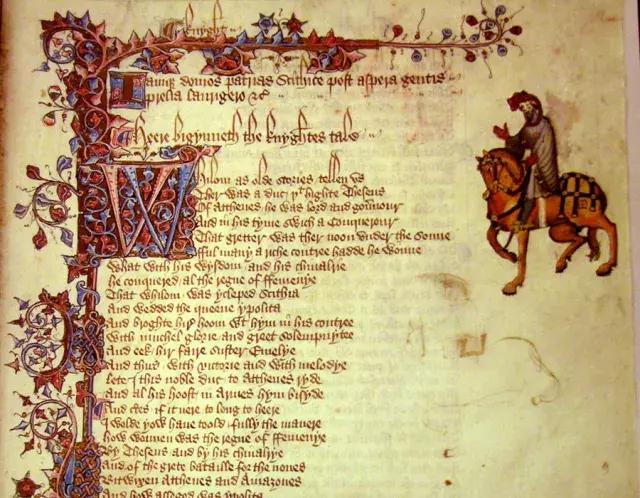 Knyght
Iamque domos patrias Scithice post aspera gentis
prelia laurigero &c
Heere bigynneth the knyghtes tale
Whilom as olde stories tellen vs
Ther was a duc þt highte Theseus
Of Atthenes he was lord and gouernour
And in his tyme swich a Conquerour
That gretter was ther noon vnder the sonne
fful many a riche contree hadde he wonne
What with his wysdom and his chiualrie
he conquered al the regne of ffemenye
That whilom was ycleped Scithia
And wedded the queene ypolita
And broghte hir hoom wt hym in his contree
With muchel glorie and greet solempnytee
And eek hir faire suster Emelye
And thus with victorie and with melodye
Lete I this noble duc to Atthenes ryde
And al his hoost in Armes hym bisyde
And certes if it nere to long to heere
I wolde yow haue toold fully the manere
how wonnen was the regne of ffemenye
By Theseus and by his chiualrye
And of the grete bataille for the nones
Bitwixen Atthenes and Amazones
And how asseged was ypolita